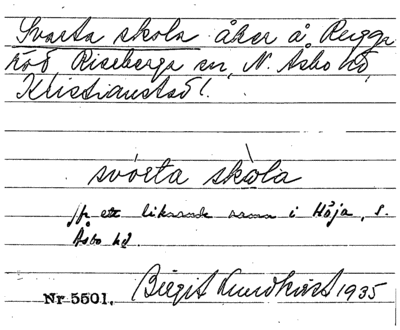 Svarta skola åker å Rugga
röd Riseberga sn, N. Åsbo hd,
Kristianstad l.
svarta skòla
jfr ett liknande namn i Höja, S.
Åsbo hd.
Nr 5501. Birgit Lundkvist 1935